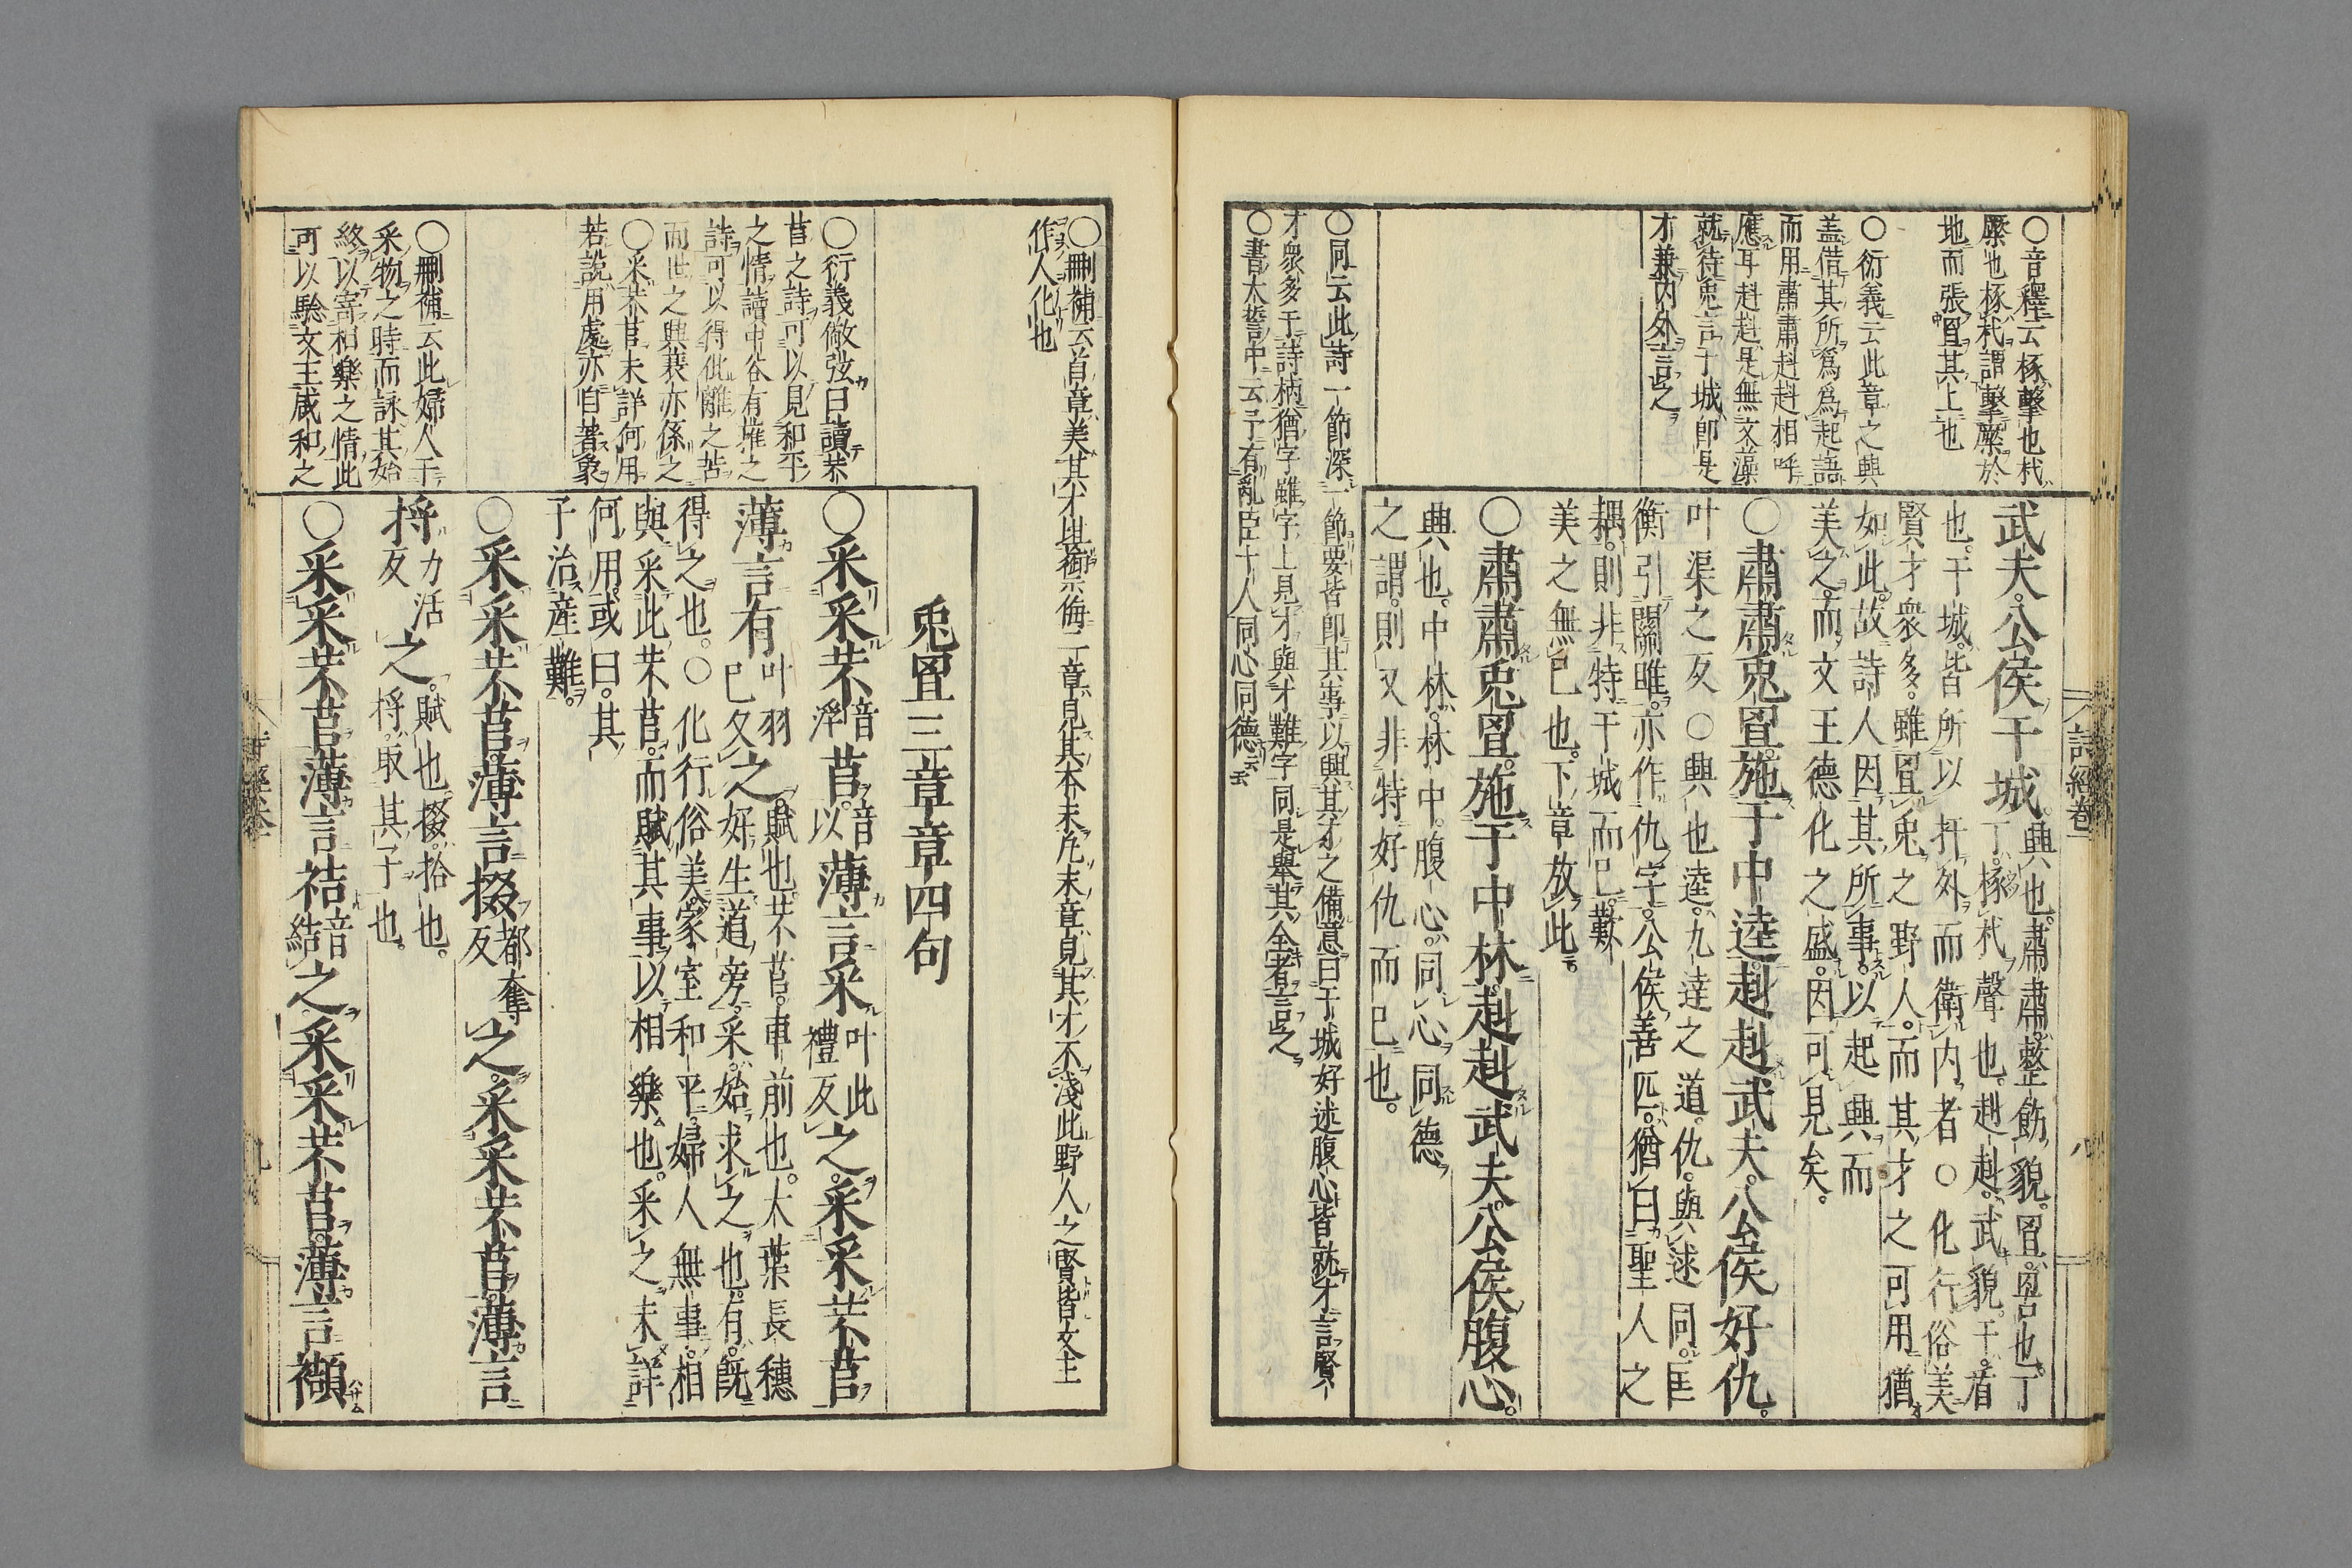 ○音釋云椓擊也杙
橜也椓杙謂擊橜於
地而張罝其上也
○衍義云此章之興
蓋借其所爲爲起語
而用肅肅赳赳相呼
應耳赳赳是無文藻
就待兎言干城卽是
才兼內外言之
武夫公侯干城興也肅肅整飭貌罝罟也丁
丁椓杙聲也赳赳武貌干盾
也干城皆所以扞外而衛内者○化行俗美
賢才衆多雖罝兎之野人而其才之可用猶
如此故詩人因其所事以起興而
美之而文王德化之盛因可見矣
○肅肅兎罝施于中逵赳赳武夫公侯好仇
叶渠之反○興也逵九逹之道仇與逑同匡
衡引關雎亦作仇字公侯善匹猶曰聖人之
耦則非特干城而已歎
美之無已也下章放此
○肅肅兎罝施于中林赳赳武夫公侯腹心
興也中林林中腹心同心同德
之謂則又非特好仇而已也
○同云此詩一節深一節要皆卽其事以興其才之備意曰干城好逑腹心皆就才言賢
才衆多于詩柄猶字雖字上見才與才難字同是舉其全者言之
○書太誓中云予有亂臣十人同心同德云云
詩經卷一
八
○刪補云首章美其才堪禦侮二章見其本末凢末章見其才不淺此野人之賢皆文王
作人化也
兎罝三章章四句
○衍義倣弦曰讀芣
苢之詩可以見和平
之情讀中谷有蓷之
詩可以得仳離之苦
而世之興衰亦係之
○采芣苢未詳何用
若說用處亦自著象
○采采芣音浮苢音以薄言采叶此禮反之采采芣苢
薄言有叶羽已反之賦也芣苢車前也大葉長穗
好生道旁采始求之也有旣
得之也○化行俗美家室和平婦人無事相
與采此芣苢而賦其事以相樂也采之未詳
何用或曰其
子治產難
○刪補云此婦人于
采物之時而詠其始
終以寄相樂之情此
可以驗文王咸和之
○采采芣苢薄言掇都奪反之采采芣苢薄言
捋力活反之賦也掇拾也
捋取其子也
○采采芣苢薄言袺音結之采采芣苢薄言襭